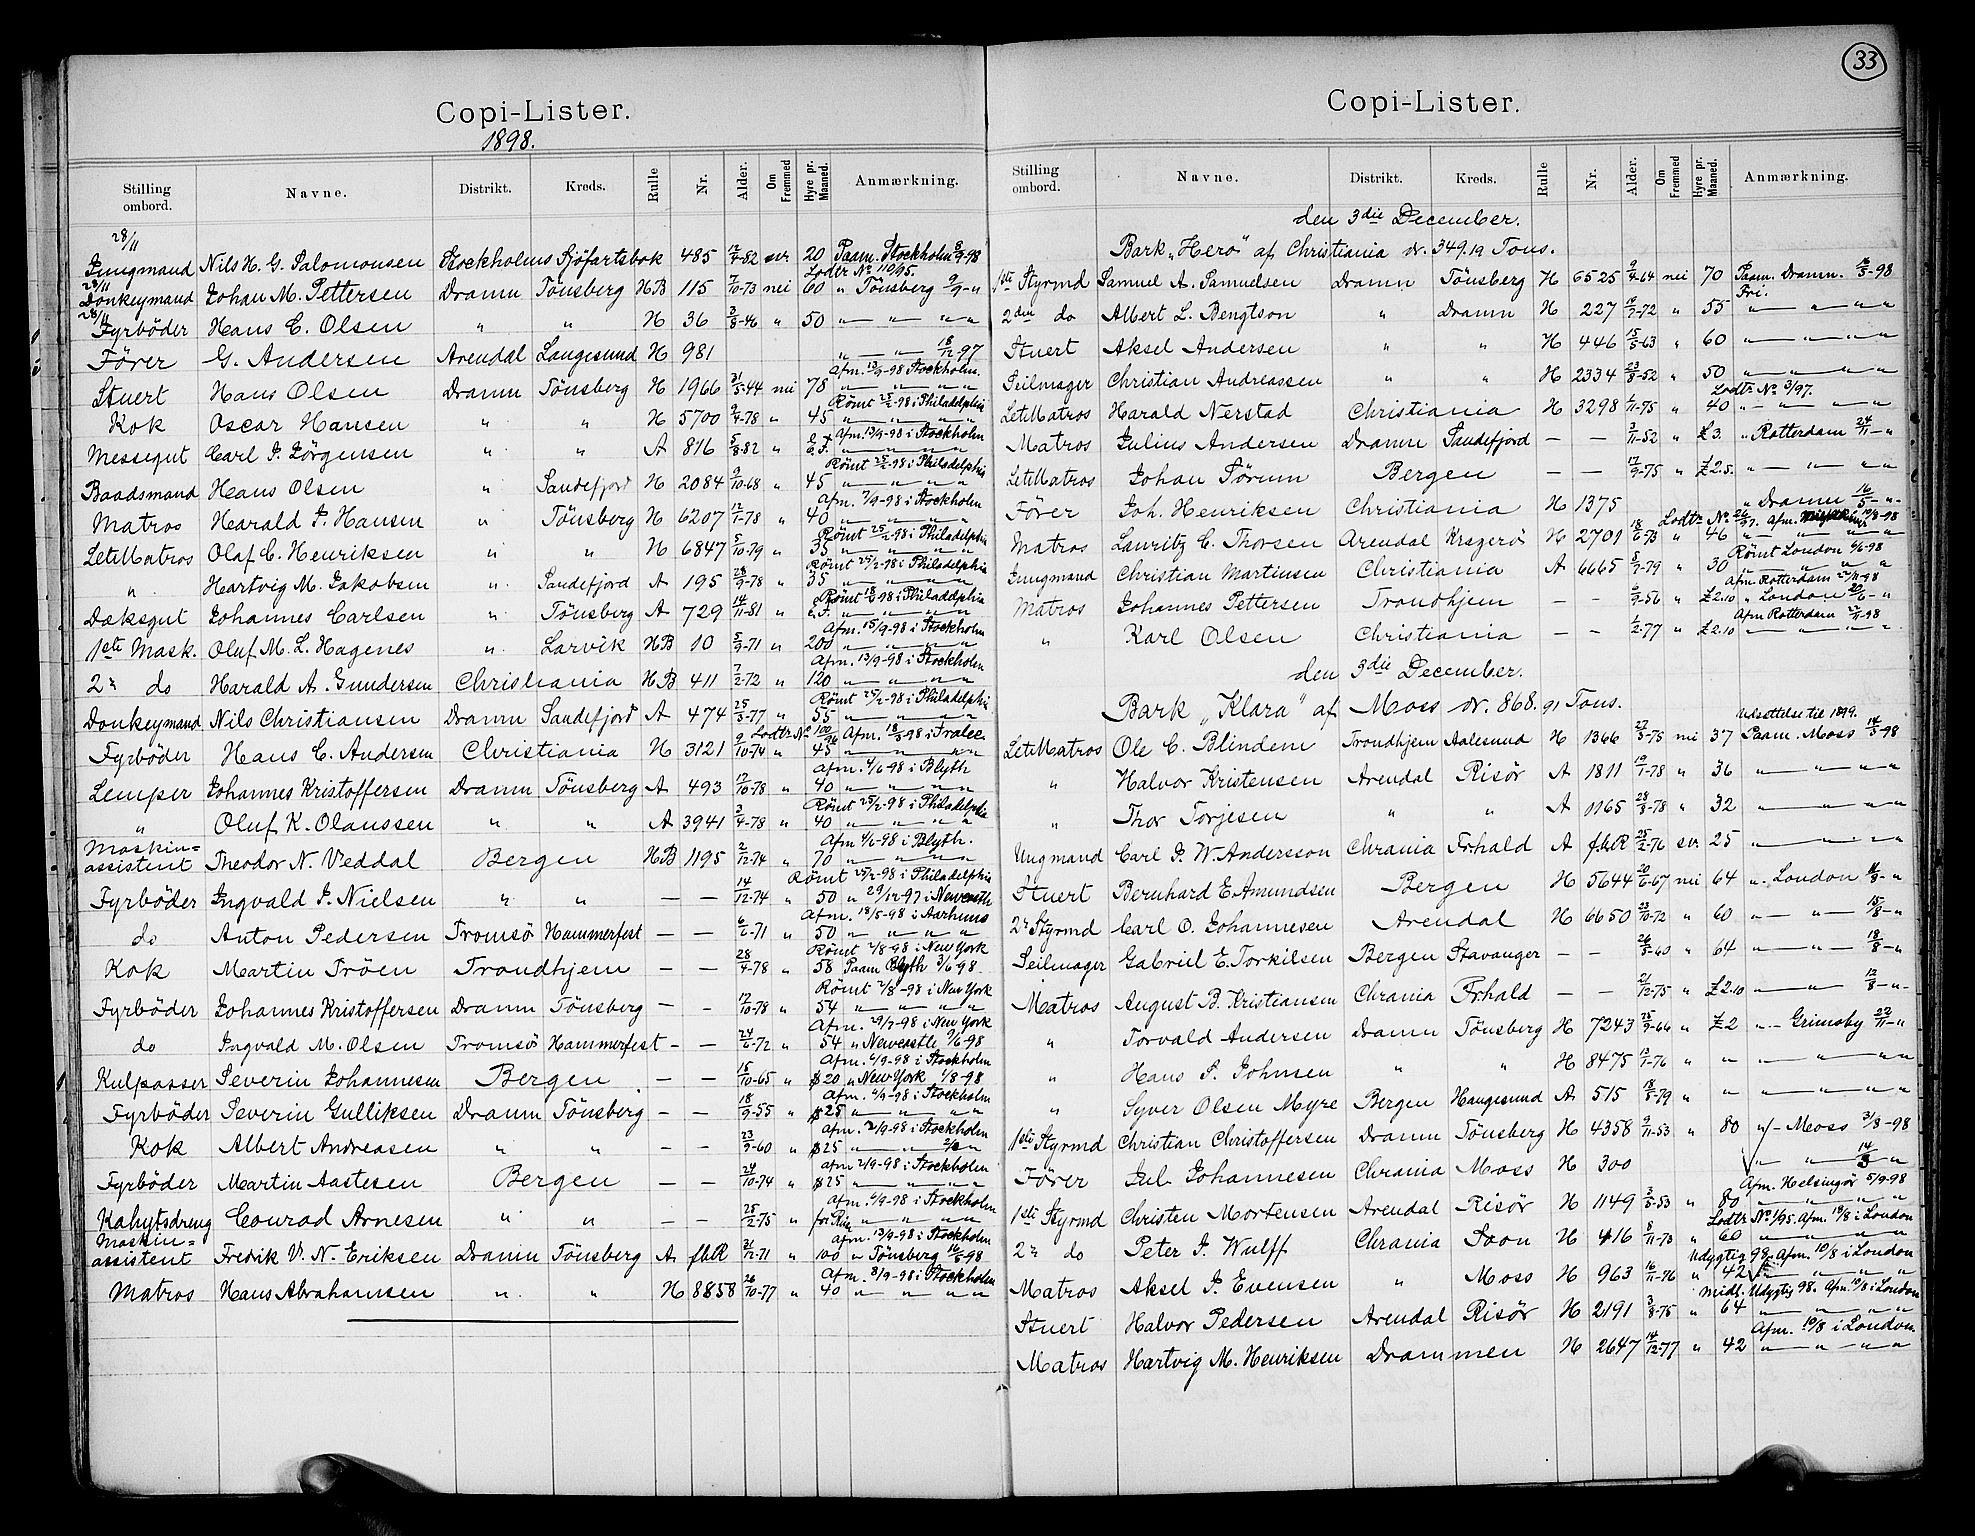 33
Copi-Lister.
1898.
Stilling ombord. Navne. Distrikt. Kreds. Rulle Nr. Alder. Om Fremmed Hyre pr. Maaned. Anmærkning.
28/11
Jungmand Nils H. G. Salomonsen Stockholms Sjöfartsbok 485 12/4-82 sv. 20 Paam. Stockholm 8/9-98
28/11 Lodtr No 110/95.
Donkeymand Johan M. Pettersen Dramn Tönsberg HB 115 7/10-73 nei 60 " Tönsberg 9/9-"
28/11
Fyrböder Hans C. Olsen " " H 36 3/8-46 " 50 " — " — " "
Förer G. Andersen Arendal Langesund H 981 " — " — 18/12 97
Afm. 13/9-98 Stockholm.
Stuert Hans Olsen Dramn Tönsberg H 1966 31/5-44 nei 78 " — " — " "
Römt 25/2-98 i Philadelphia
Kok Oscar Hansen " " H 5700 9/4-78 " 45 " — " — " "
Afm. 13/9-98 i Stockholm
Messegut Carl J. Jörgensen " " A 816 5/8-82 "
Römt 25/2-98 i Philadelphia
Baadsmand Hans Olsen " Sandefjord H 2084 9/10-68 " 45 " — " — " "
Afm. 7/9-98 i Stockholm
Matros Harald J. Hansen " Tönsberg H 6207 12/1-78 " 40 " — " — " "
Römt 25/2-98 i Philadelphia
LetMatros Olaf C. Henriksen " " H 6847 5/10-79 " 35 " — " — " "
Römt 25/2-98 i Philadelphia
" Hartvig M. Jakobsen " Sandefjord A 195 28/9-78 " 35 " — " — " "
Römt i Philadelphia
Dæksgut Johannes Carlsen " Tönsberg A 729 14/11-81 "
Afm. 15/9-98 i Stockholm
1ste Mask. Oluf M. L. Hagenes " Larvik HB 10 5/9-71 " 200 " — " — " "
Afm. 13/9-98 i Stockholm
2n do Harald A. Gundersen Christiania HB 411 7/2-72 " 120 " — " — " "
Römt 25/2-98 i Philadelphi.
Donkeymand Nils Christiansen Dramn Sandefjord A 474 25/3-77 " 55 " — " — " "
Lodtr No 100/96 Afm. 18/3-98 i Tralee
Fyrböder Hans C. Andersen Christiania H 3121 9/10-74 " 45 " — " — " "
Afm. 4/6-98 i Blyth
Lemper Johannes Kristoffersen Dramn Tönsberg A 493 12/10-78 " 40 " — " — " "
Römt 25/2-98 i Philadelphia
" Oluf K. Olaussen " " A 3941 3/4-78 " 40 " — " — " "
Afm 4/6-98 i Blyth.
Maskin=
assistent Theodor N. Veddal Bergen HB 1195 2/12-74 " 70 " — " — " "
Römt 25/2-98 i Philadelphia
Fyrböder Ingvald J. Nielsen " " — — 14/12-74 " 50 " 29/12-97 i Newcastle
Afm. 18/5-98 i Aarhuus
do Anton Pedersen Tromsö Hammerfest — — 6/6-71 " 50 " — " — " "
Römt 2/8-98 i New York
Kok Martin Tröen Trondhjem — — 28/4-78 " 58 Paam Blyth 3/6 98.
Römt 2/8-98 i New York
Fyrböder Johannes Kristoffersen Dramn Tönsberg — - 12/10-78 " 54 " — " — " "
Afm. 29/7-98 i New York
do Ingvald M. Olsen Tromsö Hammerfest - — 24/6-72 " 54 " Newcastle 7/6-98
Afm. 6/9-98 i Stockholm
Kulpasser Severin Johannesen Bergen — — 15/10-65 " $20 " New York 1/8-98
Afm. 6/9-98 i Stockholm
Fyrböder Severin Gulliksen Dramn Tönsberg — — 18/9-55 " $25 " — " — " "
Afm. 2/9-98 i Stockholm
Kok Albert Andreasen " " — — 23/9-60 " $25 " — " —
Afm 2/9-98 i Stockholm
Fyrböder Martin Aastesen Bergen — — 24/10-74 " $25 " — " — " "
Afm. 6/9-98 i Stockholm
Kahytsdreng Conrad Arnesen " " — — 25/2-75 " " — " — " "
Afm. 13/9-98 i Stockholm
Maskin=
assistent Fredrik V. N. Eriksen Dramn Tönsberg A fhR 31/12-71 " 100 " Tönsberg 16/5-98
Afm. 8/9-98 i Stockholm
Matros Hans Abrahamsen " " H 8858 26/10-77 " 40 " — " — " "
Copi-Lister.
Stilling ombord. Navne. Distrikt. Kreds. Rulle Nr. Alder. Om Fremmed Hyre pr. Maaned. Anmærkning.
den 3die December.
Bark "Hero" af Christiania dr. 349.19 Tons.
1ste Styrmd Samuel A. Samuelsen Dramn Tönsberg H 6525 9/4-64 nei 70 Paam. Dramn. 16/5-98
Fri.
2den do Albert L. Bengtson " Dramn H 227 19/7-72 " 55 " — " — " "
Stuert Aksel Andersen " " H 446 15/5-63 " 60 " — " — " "
Seilmager Christian Andreassen " " H 2334 23/8-52 " 50 " — " — " "
Lodtr No 3/97.
LetMatros Harald Nerstad Christiania H 3298 1/11-75 " 40 " — " — " "
Matros Julius Andersen Dramn Sandefjord — — 3/11-52 " £3. " Rotterdam 24/11-"
LetMatros Johan Törum Bergen — — 17/9-75 " £2.5. " — " — " "
Förer Joh. Henriksen Christiania H 1375 " Dramn 16/5-"-
Lodtr No 26/97. Afm. 19/8-98
Matros Lauritz C. Thorsen Arendal Kragerö H 2701 18/6-73 " 46 " — " — " "
Römt London 6/6-98
Jungmand Christian Martinsen Christiania A 6665 5/7-79 " 30 " — " — " "
Afm. Rotterdam 22/11-98
Matros Johannes Pettersen Trondhjem — — 6/9-56 " £2.10 " London 20/6-"
Afm Rotterdam 22/11-98
" Karl Olsen Christiania — — 1/2-77 " £2.10 " — " — " "
den 3die December.
Bark "Klara" af Moss dr. 868.91 Tons.
Udsettelse til 1899.
LetMatros Ole C. Blindem Trondhjem Aalesund H 1366 27/3-75 nei 37 Paam. Moss 14/3-98
" Halvor Kristensen Arendal Risör A 1811 19/1-78 " 36 " — " — " "
" Thor Torjesen " " A 1165 28/3-78 " 32 " — " — " "
Ungmand Carl J. W. Andersson Chrania Frhald A fhR 25/2-76 sv. 25 " — " — " "
Stuert Bernhard E. Amundsen Bergen H 5644 20/6-67 nei 64 ". London 11/8-"
2n Styrmd Carl O. Johannesen Arendal H 6650 23/10-72 " 60 " — " — 15/8-"
Seilmager Gabriel E. Torkilsen Bergen Stavanger — — 26/5-60 " 64 " — " — 18/8-"
Matros August B. Kristiansen Chrania Frhald — — 21/12-75 " £2.10 " — " — 12/8-"-
" Torvald Andersen Dramn Tönsberg H 7243 25/9-66 " £2 " - Grimsby 22/11-"
" Hans S. Johnsen " " H 8475 12/7-76 " " " — " — " "
" Syver Olsen Myre Bergen Haugesund A 515 18/8-79 " " " — " — " "
1ste Styrmd Christian Christoffersen Dramn Tönsberg H 4358 9/11-53 " 80 "/- Moss 3/8-98
Förer Jul. Johannesen Chrania Moss H 300 " — " — 14/3 "
Afm. Helsingör 5/9-98
1ste Styrmd Christen Mortensen Arendal Risör H 1149 3/3-53 " 80 " — " — " "
Lodtr No 1/95. Afm. 18/8 i London
2n do Peter J. Wulff Chrania Soon H 416 8/11-73 " 60 " — " — " "
Udygtig 98. Afm. 10/8 i London
Matros Aksel J. Evensen " Moss H 963 16/11-76 " 42 " — " — " "
Midl. Udygtig 98. Afm. 10/8 i London
Stuert Halvor Pedersen Arendal Risör H 2191 3/8-75 " 64 " — " — " "
Afm. 10/8 i London.
Matros Hartvig M. Henriksen Drammen H 2647 14/12-77 " 42 " — " — " "